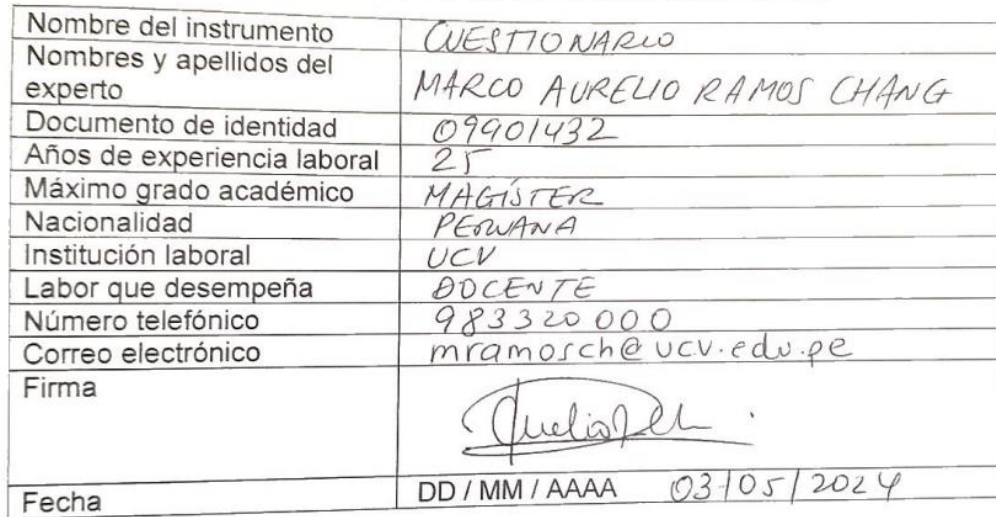 Nombre del instrumento CUESTIONARIO
Nombres y apellidos del
experto MARCO AURELIO RAMOS CHANG
Documento de identidad 09901432
Años de experiencia laboral 25
Máximo grado académico MAGÍSTER
Nacionalidad PERUANA
Institución laboral UCV
Labor que desempeña DOCENTE
Número telefónico 983320000
Correo electrónico mramosch@ucv.edu.pe
Firma
Fecha DD / MM / AAAA 03/05/2024